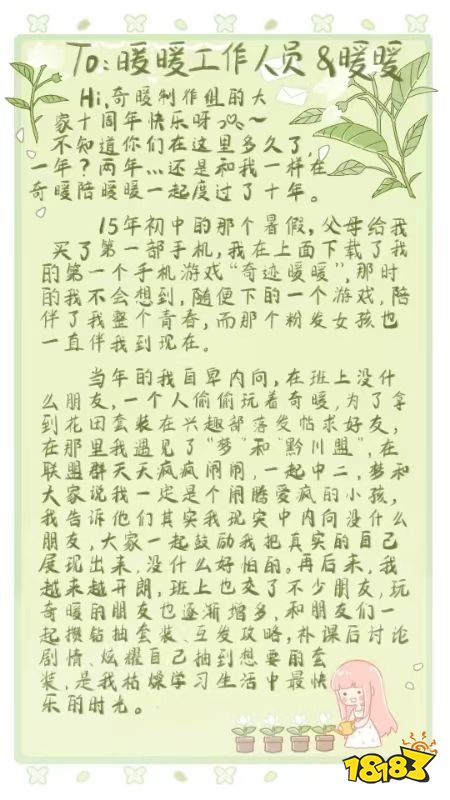 To:暖暖工作人员&暖暖
Hi,奇暖制作组的大
家十周年快乐呀~
不知道你们在这里多久了,
一年?两年...还是和我一样在
奇暖陪暖暖一起度过了十年。
15年初中的那个暑假,父母给我
买了第一部手机,我在上面下载了我
的第一个手机游戏“奇迹暖暖”,那时
的我不会想到,随便下的一个游戏,陪
伴了我整个青春,而那个粉发女孩也
一直伴我到现在。
当年的我自卑内向,在班上没什
么朋友,一个人偷偷玩着奇暖,为了拿
到花田套装在兴趣部落发帖求好友,
在那里我遇见了“梦”和“黔川盟”,在
联盟群天天疯疯闹闹,一起中二,梦和
大家说我一定是个闹腾爱疯的小孩,
我告诉他们其实我现实中内向没什么
朋友,大家一起鼓励我把真实的自己
展现出来,没什么好怕的。再后来,我
越来越开朗,班上也交了不少朋友,玩
奇暖的朋友也逐渐增多,和朋友们一
起攒钻抽套装、互发攻略,补课后讨论
剧情、炫耀自己抽到想要的套
装,是我枯燥学习生活中最快
乐的时光。
18183